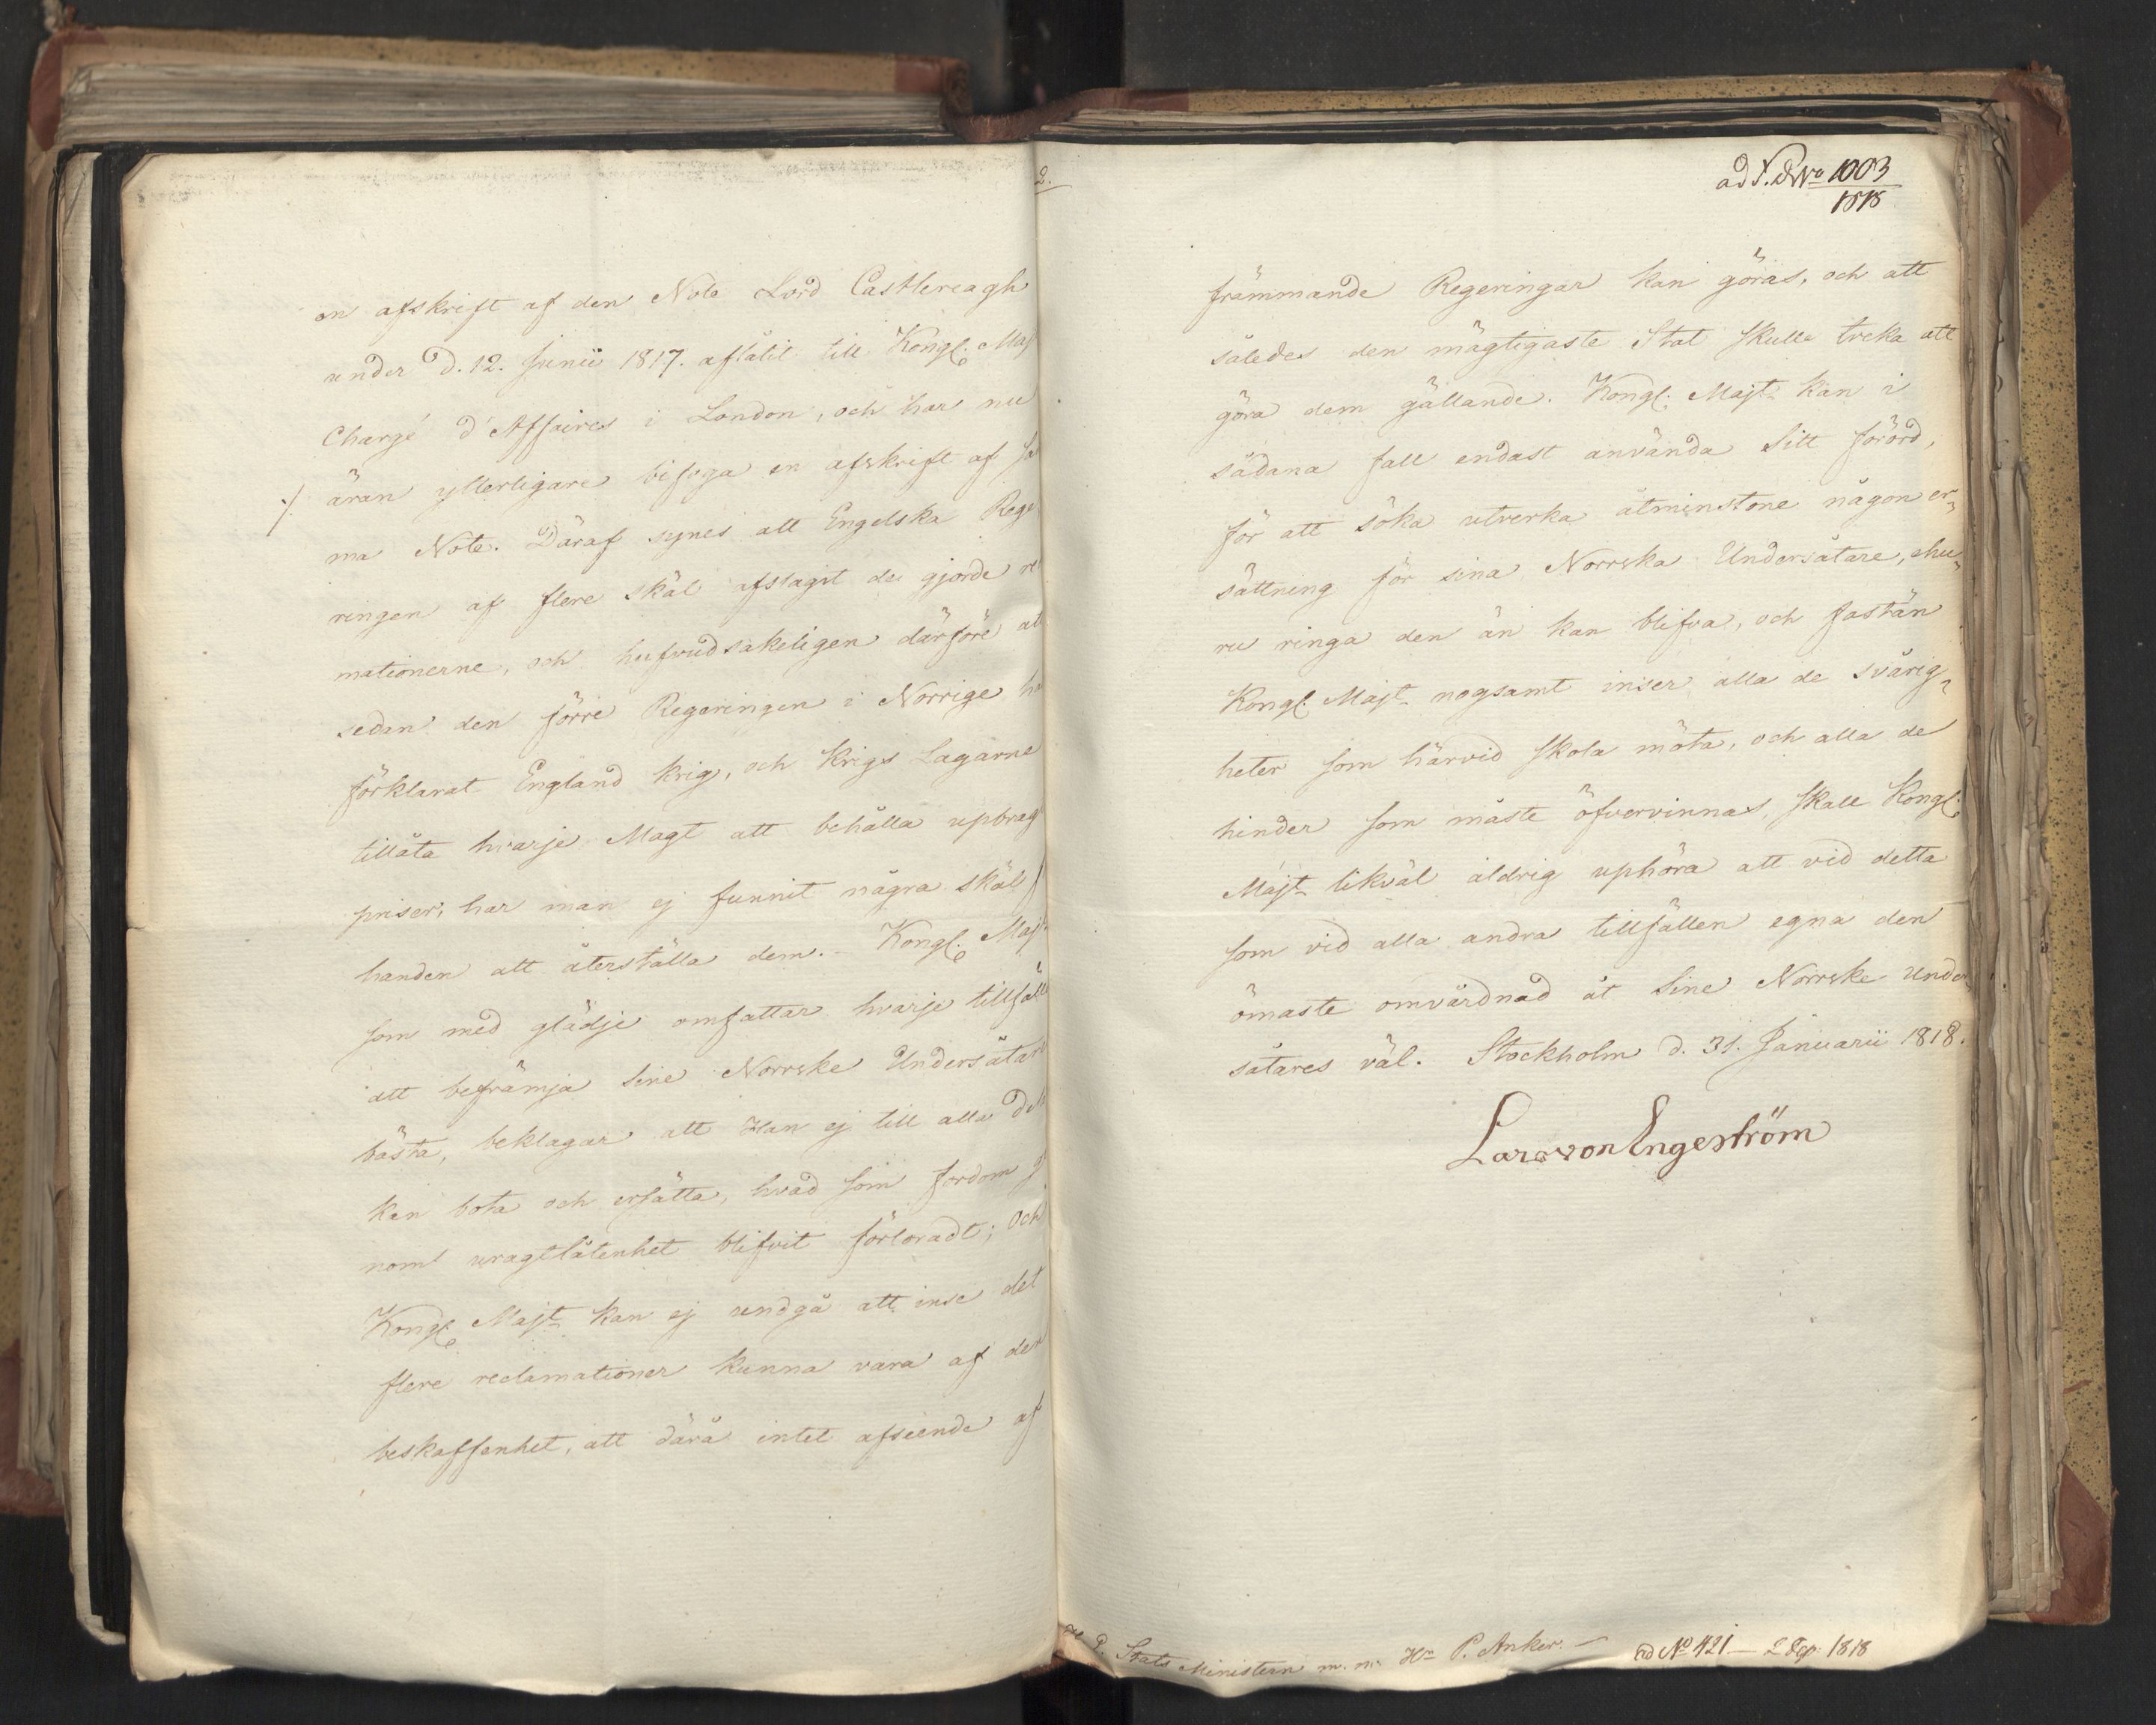 en afskrift af den Note Lord Castlereagh
under d. 12. Junii 1817. aflåtit till Kongl. Maj
Chargé d'Affaires i London, och har nu
./. äran ytterligare bifoga en afskrift af sa
ma Note. Däraf synes att Engelska Rege
ringen af flere skäl afslagit de gjorde re
mationerne, och hufvudsakeligen därföre at
sedan den förre Regeringen i Norrige ha
förklarat England krig, och Krigs Lagarne
tillåta hvarje Magt att behålla upbrag
priser, har man ej funnit några skäl f
handen att återställa dem. - Kongl. Maj
som med glädje omfattar hvarje tillfälle
att befrämja Sine Norrske Undersåtare
bästa, beklagar att Han ej till alla del
kan bota och ersätta, hvad som fordom g
nom uragtlåtenhet blifvit förloradt; och
Kongl. Majt kan ej undgå att inse det
flere reclamationer kunna vara af den
beskaffenhet, att därå intet afseende af
2.
ad J. No 1003
1818
främmande Regeringar kan göras, och att
således den mägtigaste Stat skulle tveka att
göra dem gällande. Kongl. Majt kan i
sådana fall endast använda Sitt förord,
för att söka utverka åtminstone någon er„
sättning för sina Norrska Undersåtare, ehu„
ru ringa den än kan blifva, och fastän
Kongl. Majt nogsamt inser alla de svårig„
heter som härvid skola möta, och alla de
hinder som måste öfvervinnas, skall Kongl.
Majt likväl aldrig uphöra att vid detta
som vid alla andra tillfällen egna den
ömaste omvårdnad åt Sine Norrske Under
såtares väl. Stockholm d. 31. Januarii 1818.
Lars von Engeström
Stats Ministern m. m. Hr P. Anker. -
ad No 421 - 2 Dep. 1818